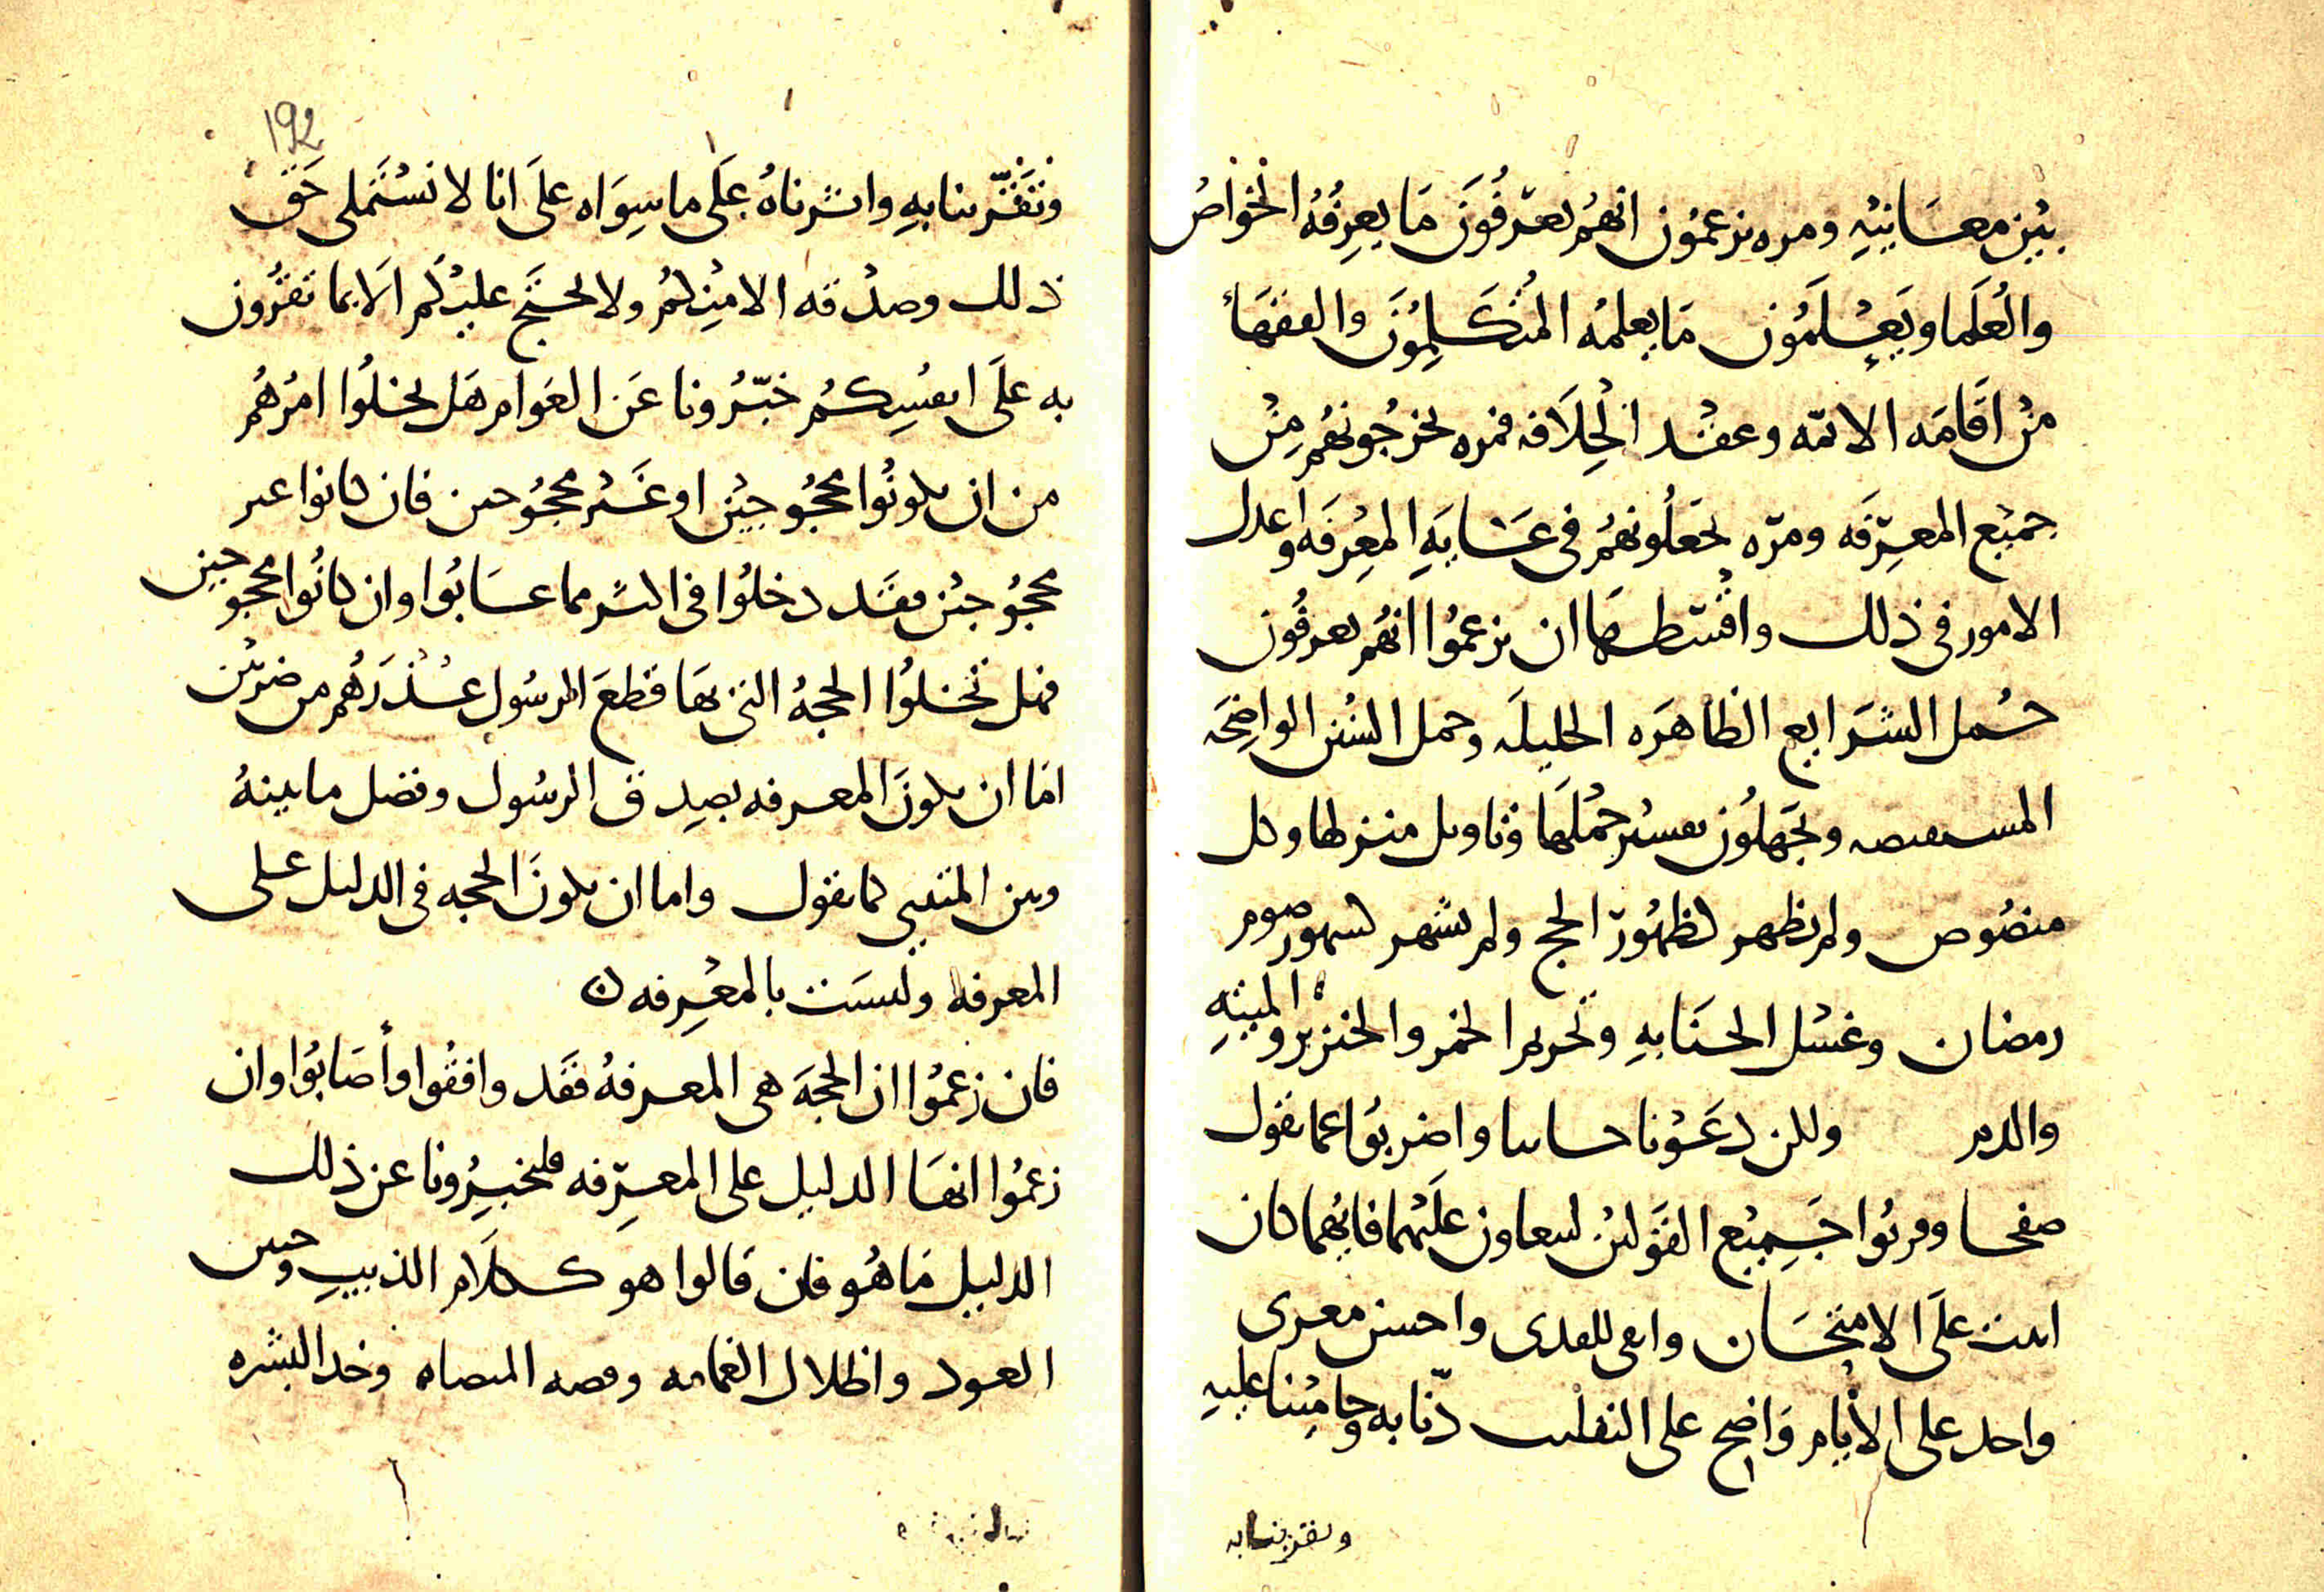 بين معانيه ومره يزعمون انهم يعرفون ما يعرفه الخواص
والعلما ويعلمون ما يعلمه المتكلمون والفقهاء
من اقامه الائمه وعقد الخلافه فمره يخرجونهم من
جميع المعرفه ومره يجعلونهم في المعرفه واعدل
الامور في ذلك واقسطها ان يزعموا انهم يعرفون
جمل الشرايع الظاهره الجليله وجمل السنن الواضحه
المستفيضه ويجهلون تفسير جملها وتاويل منزلها وكل
منصوص ولم يظهر كظهور الحج ولم يشهر كشهور صوم
رمضان وغسل الجنابه وتحريم الخمر والخنزير والميته
والدم ولكن دعونا جانبا واضربوا عما نقول
صفحا جميع القولين علمهما فايهما كان
اثبت على الامتحان واحسن معرى
واحد على الايام واضح على التقليب دنا به وحامينا عليه
ونقربنا به
١٩٢
ونقربنا به واثرناه على ما سواه على انا لا نستملي حق
ذلك وصدقه الا منكم ولا نحتج عليكم الا بما تقرون
به على انفسكم خبرونا عن العوام هل يخلوا امرهم
من ان يكونوا محجوجين او غير محجوجين فان كانوا غير
محجوجين فقد دخلوا في الشر مما عابوا وان كانوا محجوجين
فهل تخلوا الحجه التي بها قطع الرسول عذرهم من ضربين
اما ان يكون المعرفه بصدق الرسول وفصل ما بينه
وبين المتنبي كما نقول واما ان يكون الحجه في الدليل على
المعرفه وليست بالمعرفه ن
فان زعموا ان الحجه هي المعرفه فقد وافقوا وأصابوا وان
زعموا انها الدليل على المعرفه فليخبرونا عن ذلك
الدليل ما هو فان قالوا هو كلام الذيب وحنين
العود واظلال الغمامه وقصه الميضاه وخد الشجره